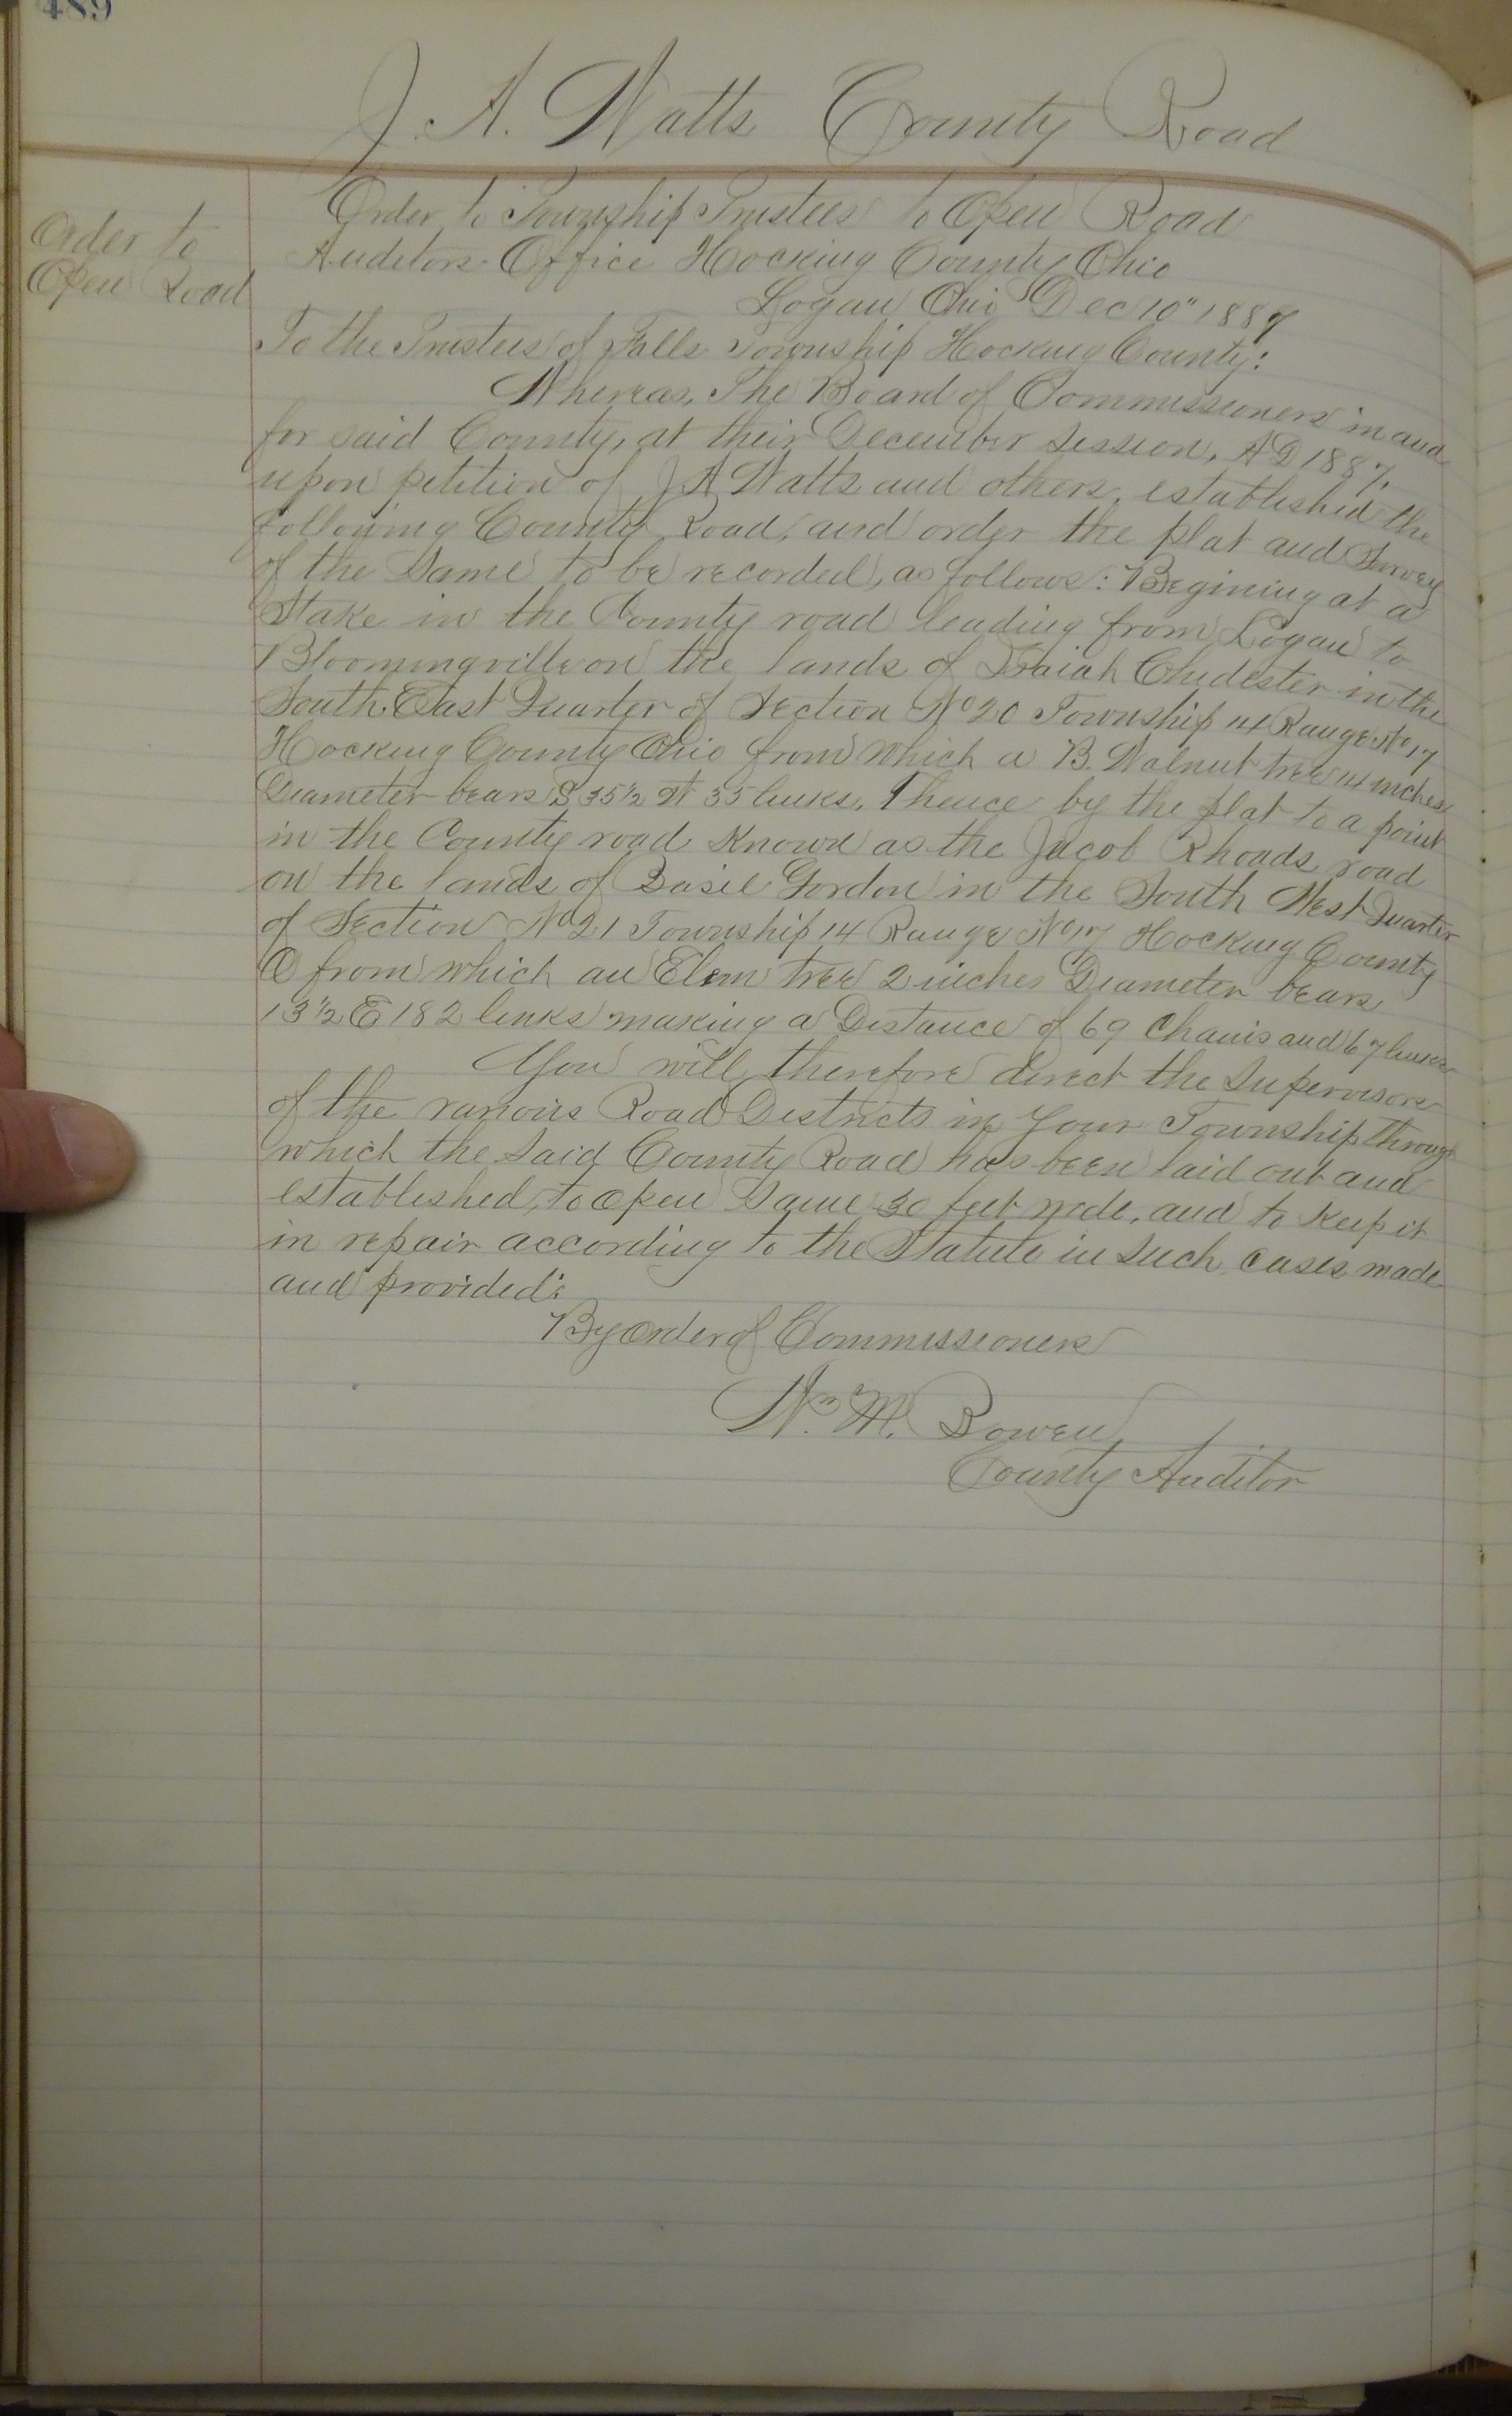 489
J. A. Watts County Road
Order to
Open Road
Order to Township Trustees to Open Road
Auditors Office Hocking County Ohio
Logan Ohio Dec 10" 1887
To the Trustees of Falls Township Hocking County:
Whereas, The Board of Commissioners in and
for said County, at their December Session, A D 1887,
upon petition of J A Watts and others, established the
following County Road, and order the plat and Survey
of the Same to be recorded, as follows: Begining at a
Stake in the County road leading from Logan to
Bloomingville on the lands of Isaiah Chidester in the
South East Quarter of Section No 20 Township 14 Range No 17
Hocking County Ohio from which a B. Walnut tree 14 inches
Diameter bears S 35½ W 35 links, Thence by the plat to a point
in the County road Known as the Jacob Rhoads road
on the lands of Basil Gordon in the South West Quarter
of Section No 21 Township 14 Range No 17 Hocking County
O from which an Elem tree 2 inches Diameter bears
13½ E 182 links making a Distance of 69 Chains and 67 links
You will therefore direct the Supervisors
of the various Road Districts in Your Township through
which the Said County Road has been laid out and
established, to open Same 30 feet wide, and to Keep it
in repair according to the Statute in Such cases made
and provided:
By Order of Commissioners
Wm M. Bowen
County Auditor